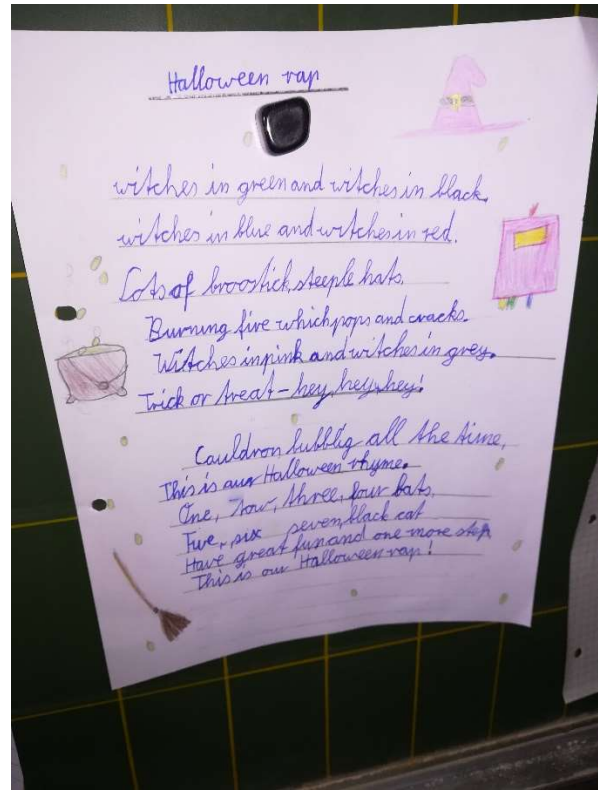 Halloween rap
witches in green and witches in black.
witches in blue and witches in red.
Lots of broostick, steeple hats.
Burning five which pops and cracks.
Witches in pink and witches in grey.
Trick or treat - hey, hey, hey!
Cauldron bubblig all the time,
This is our Halloween rhyme.
One, tow, three, four bats,
Five, six seven, black cat
Have great fun and one more step
This is our Halloween rap!